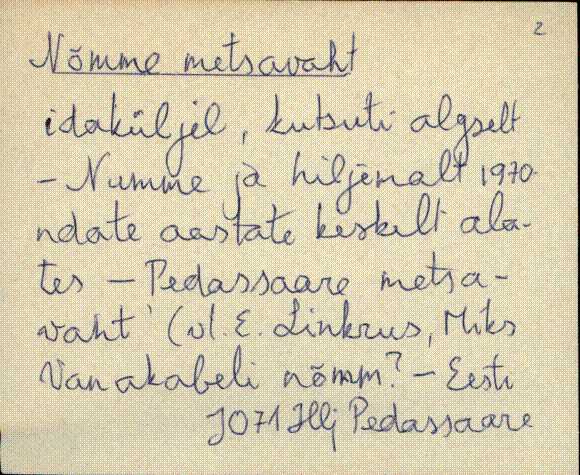 2
Nõmme metsavaht
idaküljel, kutsuti algselt
– Numme ja hiljemalt 1970-
ndate aastate keskelt ala-
tes – Pedassaare metsa-
vaht' (vl. E. Linkrus, Miks
Vanakabeli nõmm? – Eesti
JO71 Hlj Pedassaare